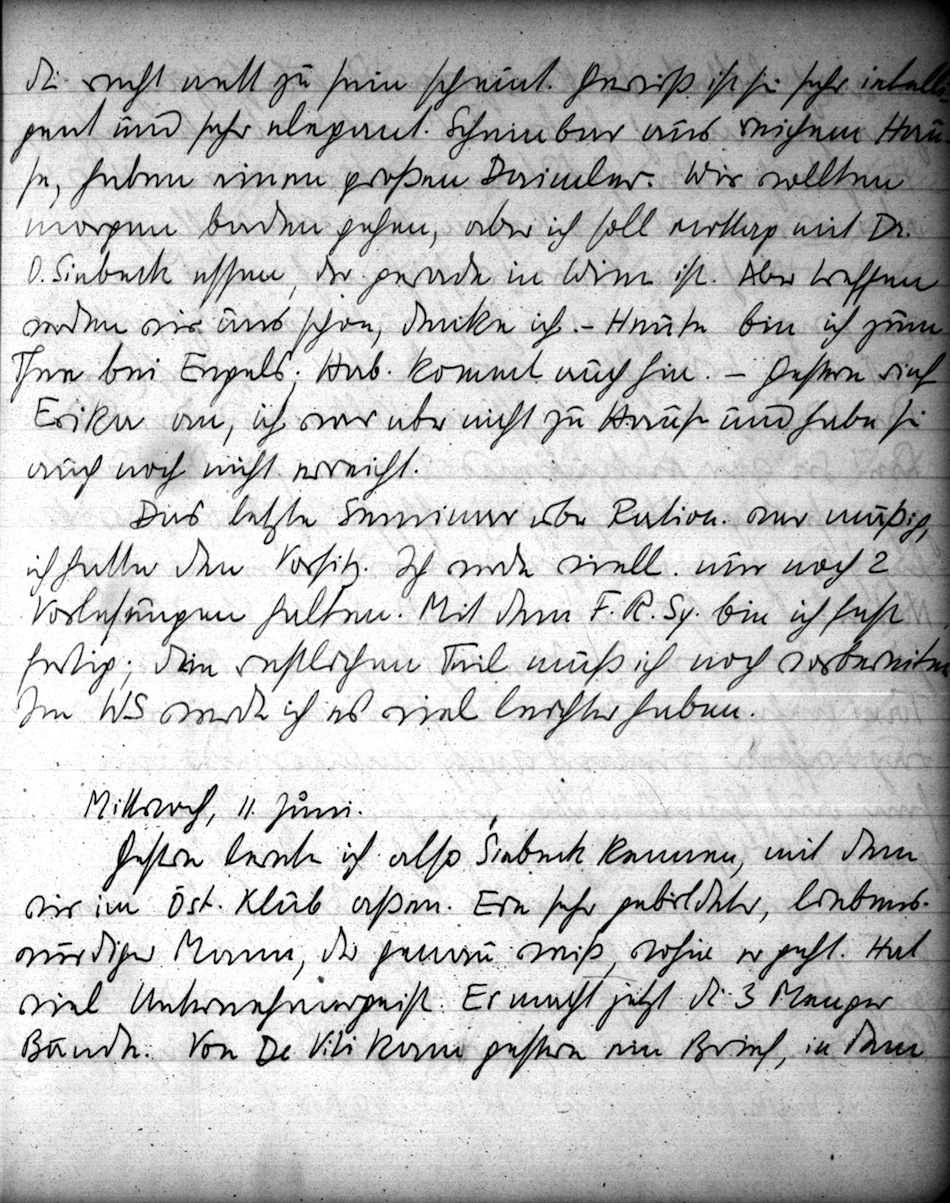 die recht nett zu sein scheint. Gewiß ist sie sehr intelli-
gent und sehr elegant. Scheinbar aus reichem Hau-
se, haben einen großen Daimler. Wir wollten
morgen baden gehen, aber ich soll mittag mit Dr.
O. Siebeck essen, der gerade in Wien ist. Aber treffen
werden wir uns schon, denke ich. – Heute bin ich zum
Thee bei Engels; Hab. kommt auch hin. – Gestern rief
Erika an, ich war aber nicht zu Hause und habe sie
auch noch nicht erreicht.
Das letzte Seminar über Ration. war mäßig,
ich hatte den Vorsitz. Ich werde viell. nur noch 2
Vorlesungen halten. Mit dem F. R. Sy. bin ich fast
fertig; den restlichen Teil muß ich noch vorbereiten
Im WS werde ich es viel leichter haben.
Mittwoch, 11. Juni.
Gestern lernte ich also Siebeck kennen, mit dem
wir im Öst. Klub aßen. Ein sehr gebildeter, liebens-
würdiger Mann, der genau weiß, wohin er geht. Hat
viel Unternehmergeist. Er macht jetzt die 3 Menger
Bände. Von De Viti kam gestern ein Brief, in dem